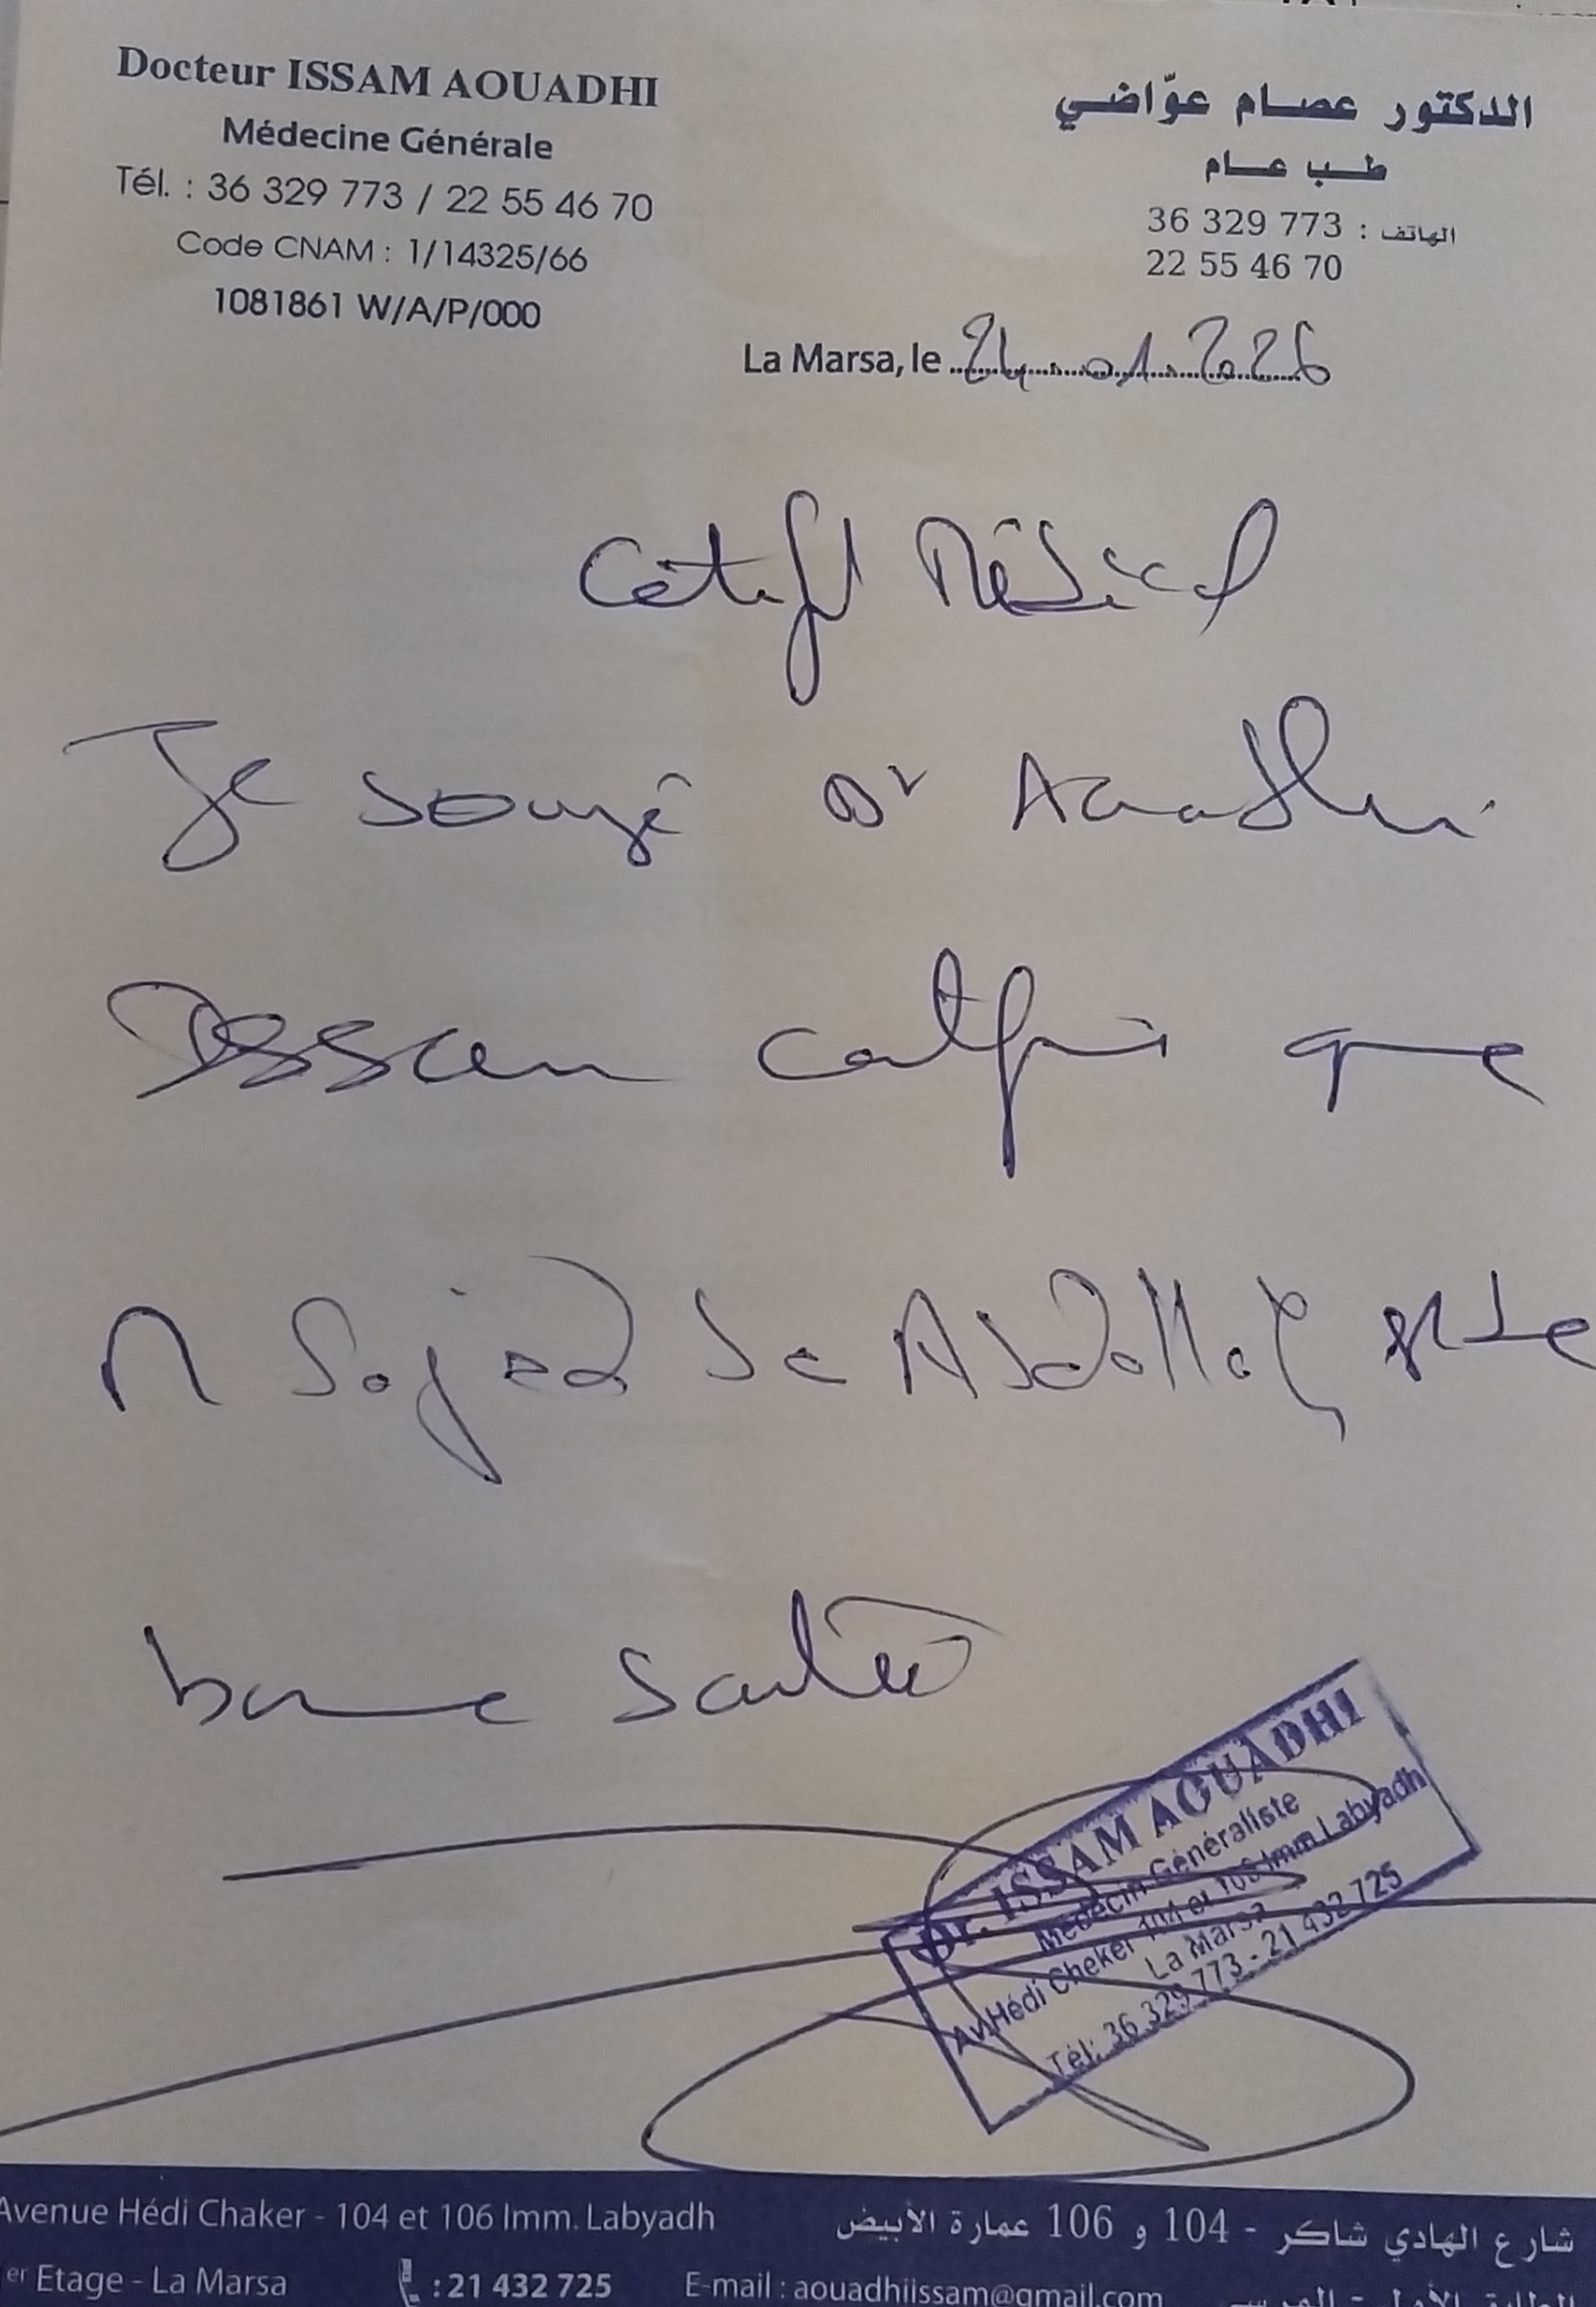 Docteur ISSAM AOUADHI
Médecine Générale
Tél. : 36 329 773 / 22 55 46 70
Code CNAM : 1/14325/66
1081861 W/A/P/000
الدكتور عصام عوّاضي
طب عام
الهاتف : 36 329 773
22 55 46 70
La Marsa, le 24 01 2026
Certificat Médical
Je soussigné Dr Aouadhi
Issam certifie que
M Sajed de Abdallah est de
bonne santé
Dr. ISSAM AOUADHI
Médecin Généraliste
Av. Hédi Cheker 104 et 106 Imm Labyadh
La Marsa
Tél: 36 329 773 - 21 432 725
Avenue Hédi Chaker - 104 et 106 Imm. Labyadh
er Etage - La Marsa
: 21 432 725
E-mail : aouadhiissam@gmail.com
شارع الهادي شاكر - 104 و 106 عمارة الأبيض